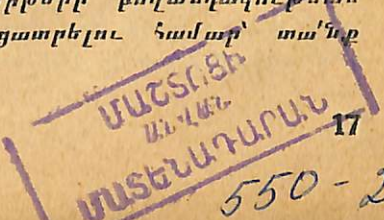 ցատրելու համար՝ տա՛նք
ՄԱՇՏՈՑԻ
ԱՆՎԱՆ
ՄԱՏԵՆԱԴԱՐԱՆ
17
550-2